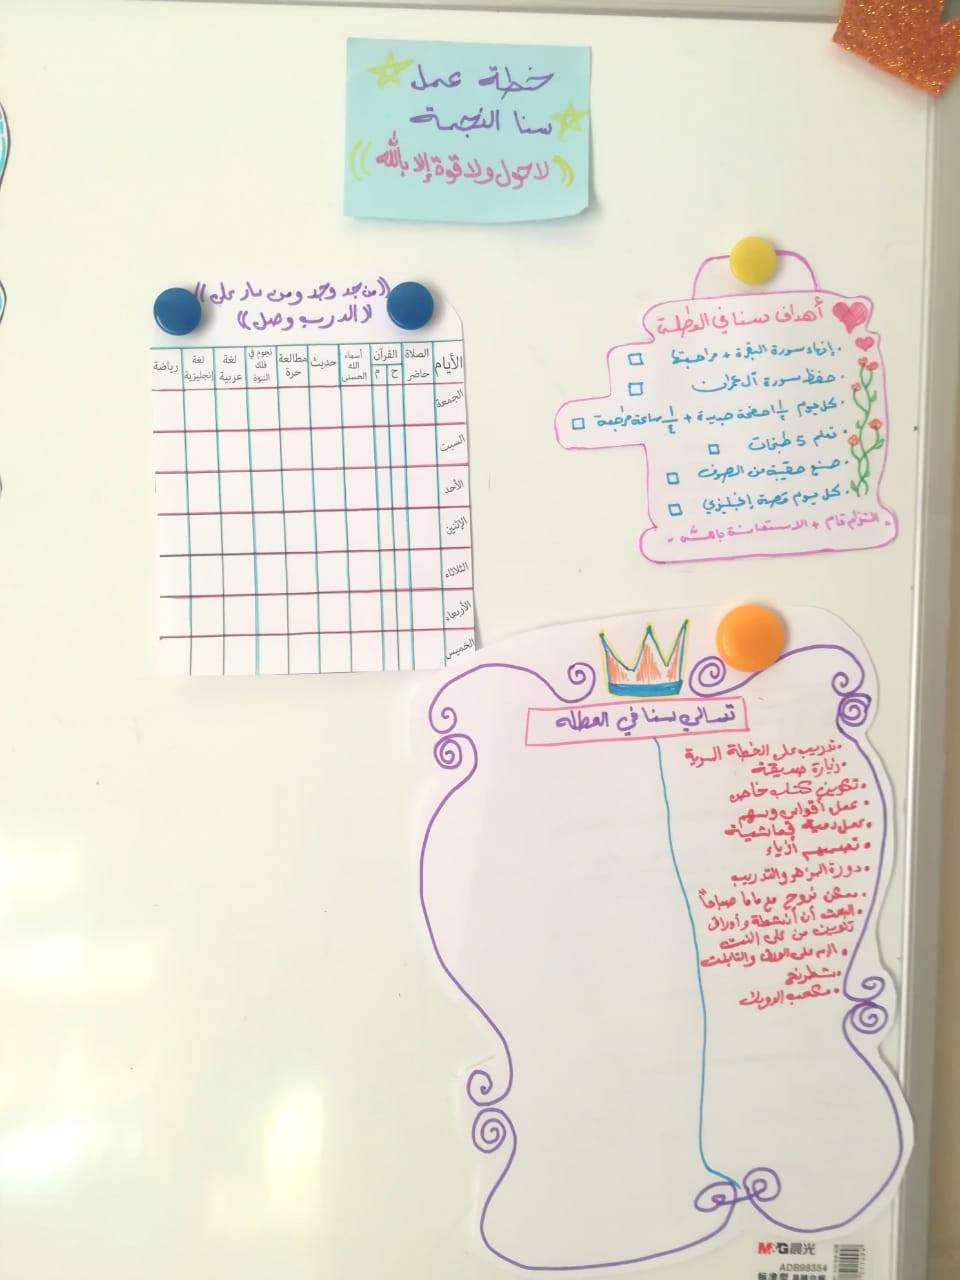 خطة عمل
سنا النجمة
لا حول ولا قوة إلا بالله
((من جد وجد ومن سار على))
((الدرب وصل))
الأيام
الصلاة
حاضر
القرآن
ح م
أسماء
الله
الحسنى
حديث
مطالعة
حرة
نجوم في
فلك
النبوة
لغة
عربية
لغة
إنجليزية
رياضة
الجمعة
السبت
الأحد
الإثنين
الثلاثاء
الأربعاء
الخميس
أهداف سنا في العطلة
. إنهاء سورة البقرة + مراجعتها
. حفظ سورة آل عمران
. كل يوم 1/2 صفحة جديدة + 1/4 ساعة مراجعة
. تعلم 5 طبخات
. صنع حقيبة من الصوف
. كل يوم قصة إنجليزي
. التزام تام + الاستعانة بالله .
تسالي سنا في العطلة
. تدريب على الخطة السرية
. زيارة صديقة
. تكوين كتاب خاص
. عمل أقواس وسهم
. عمل دمية قماشية
. تصميم أزياء
. دورة المزهر والتدريب
. ممكن نروح مع ماما صباحاً
. البحث أن أنشطة وأوراق
تلوين من على النت
. الرسم على الورق والتابلت
. شطرنج
. مكعب الروبيك
M&G 晨光
ADB98354